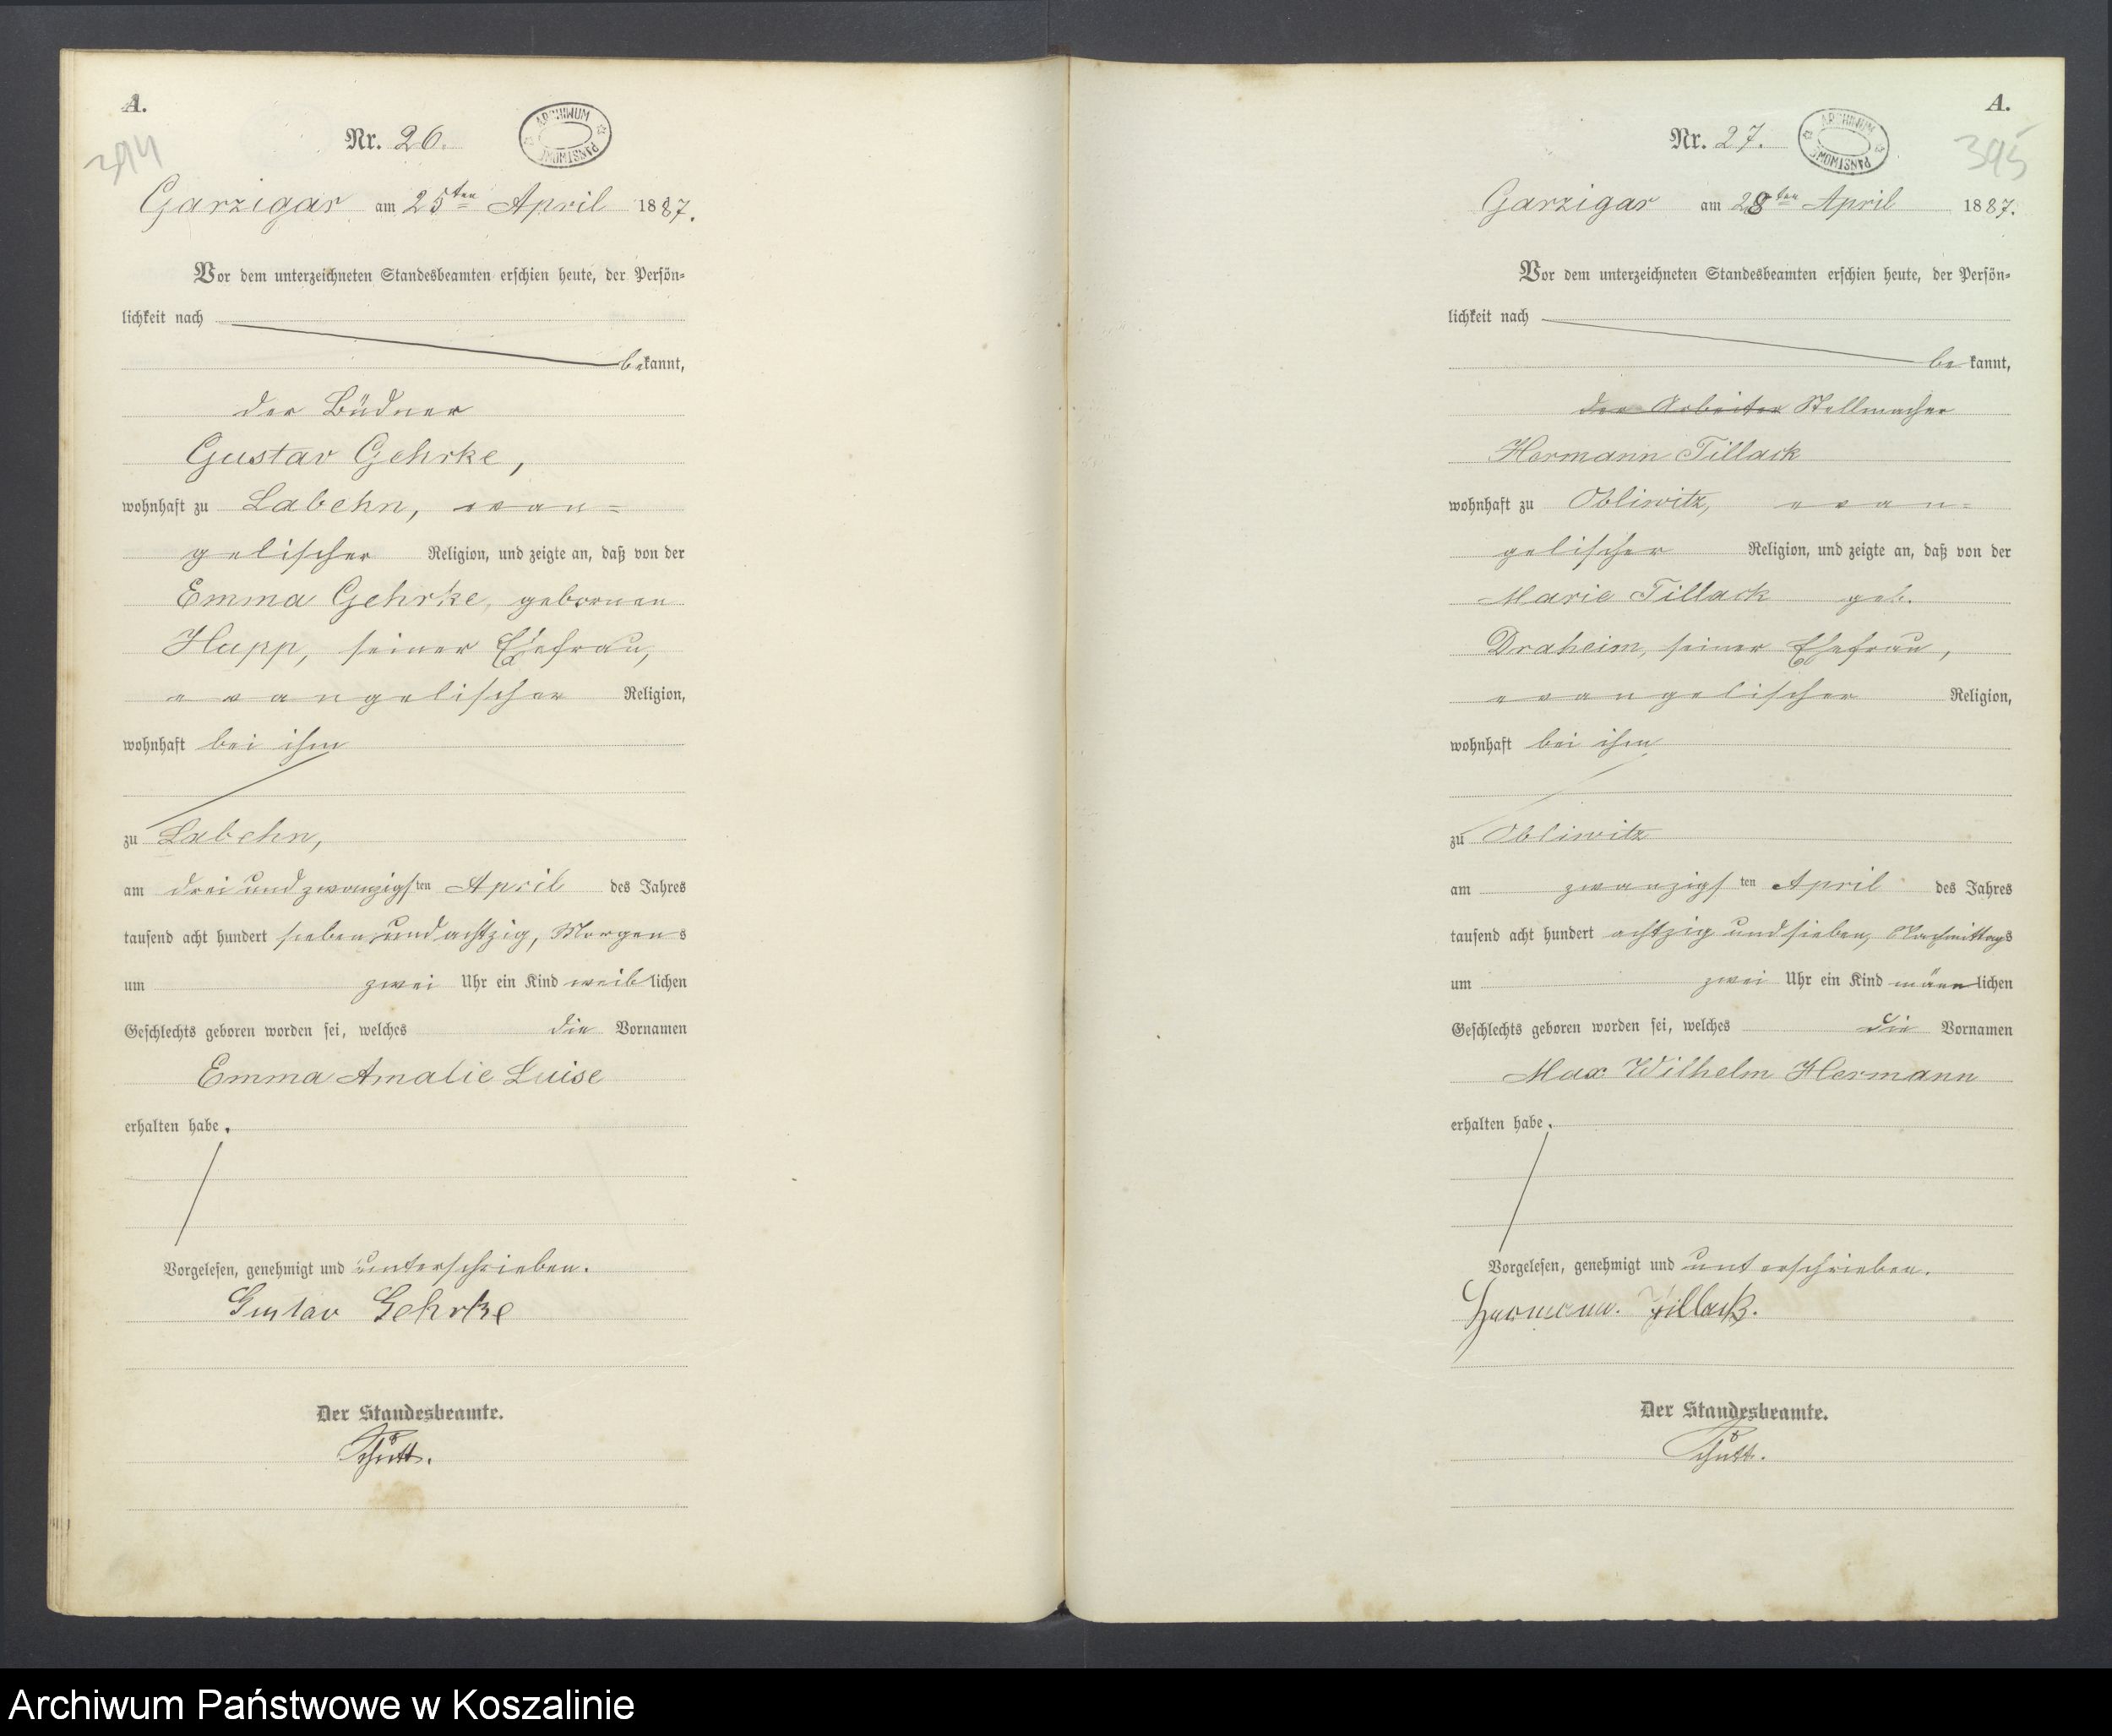 A.
394
Nr. 26.
ARCHIWUM PAŃSTWOWE
Garzigar am 25ten April 1887.
Vor dem unterzeichneten Standesbeamten erschien heute, der Persön=
lichkeit nach
bekannt,
der Büdner
Gustav Gehrke,
wohnhaft zu Labehn, evan=
gelischer Religion, und zeigte an, daß von der
Emma Gehrke, gebornen
Hupp, seiner Ehefrau,
evangelischer Religion,
wohnhaft bei ihm
zu Labehn,
am dreiundzwanzigsten April des Jahres
tausend acht hundert siebenundachtzig, Morgens
um zwei Uhr ein Kind weiblichen
Geschlechts geboren worden sei, welches die Vornamen
Emma Amalie Luise
erhalten habe.
Vorgelesen, genehmigt und unterschrieben.
Gustav Gehrke
Der Standesbeamte.
Schütt.
A.
395
Nr. 27.
ARCHIWUM PAŃSTWOWE
Garzigar am 28ten April 1887.
Vor dem unterzeichneten Standesbeamten erschien heute, der Persön=
lichkeit nach
bekannt,
der Arbeiter Stellmacher
Hermann Tillack
wohnhaft zu Obliwitz, evan=
gelischer Religion, und zeigte an, daß von der
Marie Tillack geb.
Draheim, seiner Ehefrau,
evangelischer Religion,
wohnhaft bei ihm
zu Obliwitz
am zwanzigsten April des Jahres
tausend acht hundert achtzig und sieben, Nachmittags
um zwei Uhr ein Kind männlichen
Geschlechts geboren worden sei, welches die Vornamen
Max Wilhelm Hermann
erhalten habe.
Vorgelesen, genehmigt und unterschrieben.
Hermann. Tillack.
Der Standesbeamte.
Schütt.
Archiwum Państwowe w Koszalinie